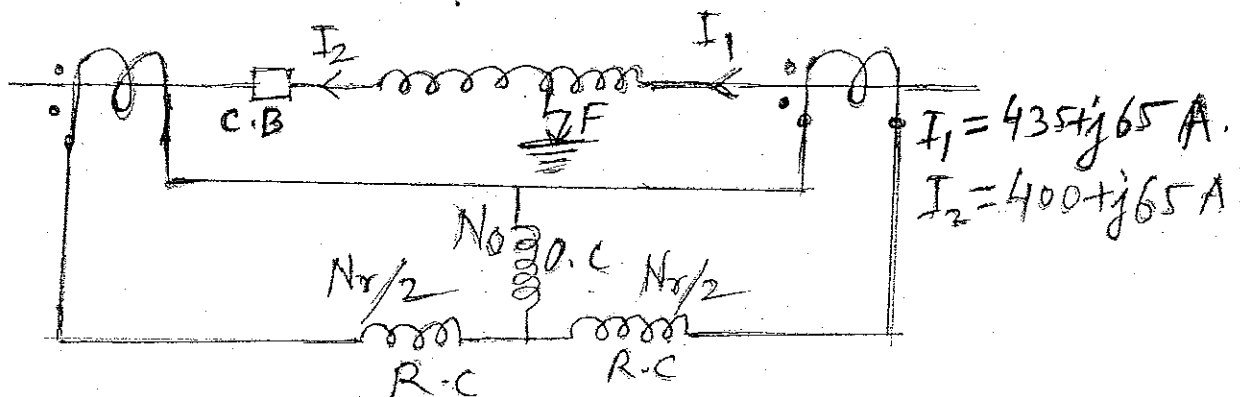 I₂
I₁
C.B
F
I₁ = 435+j65 A.
I₂ = 400+j65 A
N₀
O.C
Nr/2
Nr/2
R.C
R.C